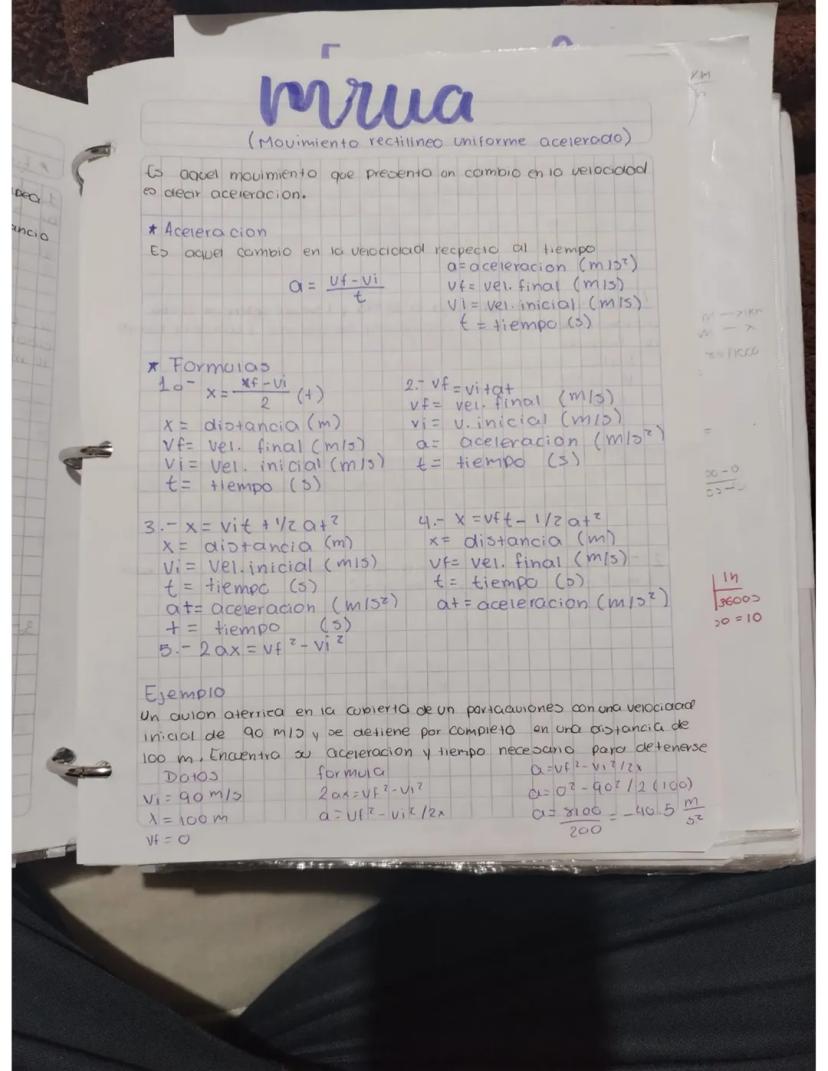 mrua
(Movimiento rectilineo uniforme acelerado)
Es aquel movimiento que presenta un cambio en la velocidad
es decir aceleracion.
* Aceleracion
Es aquel cambio en la velocidad recpecto al tiempo
a = vf - vi / t
a = aceleracion (m/s²)
vf = vel. final (m/s)
vi = vel. inicial (m/s)
t = tiempo (s)
* Formulas
1.- x = xf - vi / 2 (t)
x = distancia (m)
Vf = vel. final (m/s)
Vi = vel. inicial (m/s)
t = tiempo (s)
2.- vf = vi + at
vf = vel. final (m/s)
vi = v. inicial (m/s)
a = aceleracion (m/s²)
t = tiempo (s)
3.- x = vit + 1/2 at²
x = distancia (m)
Vi = vel. inicial (m/s)
t = tiempo (s)
at = aceleracion (m/s²)
t = tiempo (s)
4.- x = vft - 1/2 at²
x = distancia (m)
Vf = vel. final (m/s)
t = tiempo (s)
at = aceleracion (m/s²)
5.- 2ax = vf² - vi²
Ejemplo
Un avion aterrica en la cubierta de un portaaviones con una velocidad
inicial de 90 m/s y se detiene por completo en una distancia de
100 m. Encuentra su aceleracion y tiempo necesario para detenerse
Datos
Vi = 90 m/s
x = 100 m
vf = 0
formula
2ax = vf² - vi²
a = vf² - vi² / 2x
a = vf² - vi² / 2x
a = 0² - 90² / 2 (100)
a = 8100 / 200 = -40.5 m/s²
1h
3600s
= 10